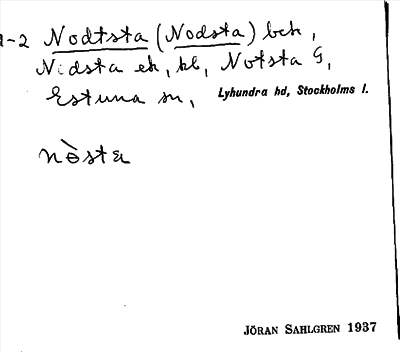 1-2 Nodtsta (Nodsta) bch,
Nidsta ek, kl, Notsta G,
Estuna sn, Lyhundra hd, Stockholms l.
nòsta
JÖRAN SAHLGREN 1937